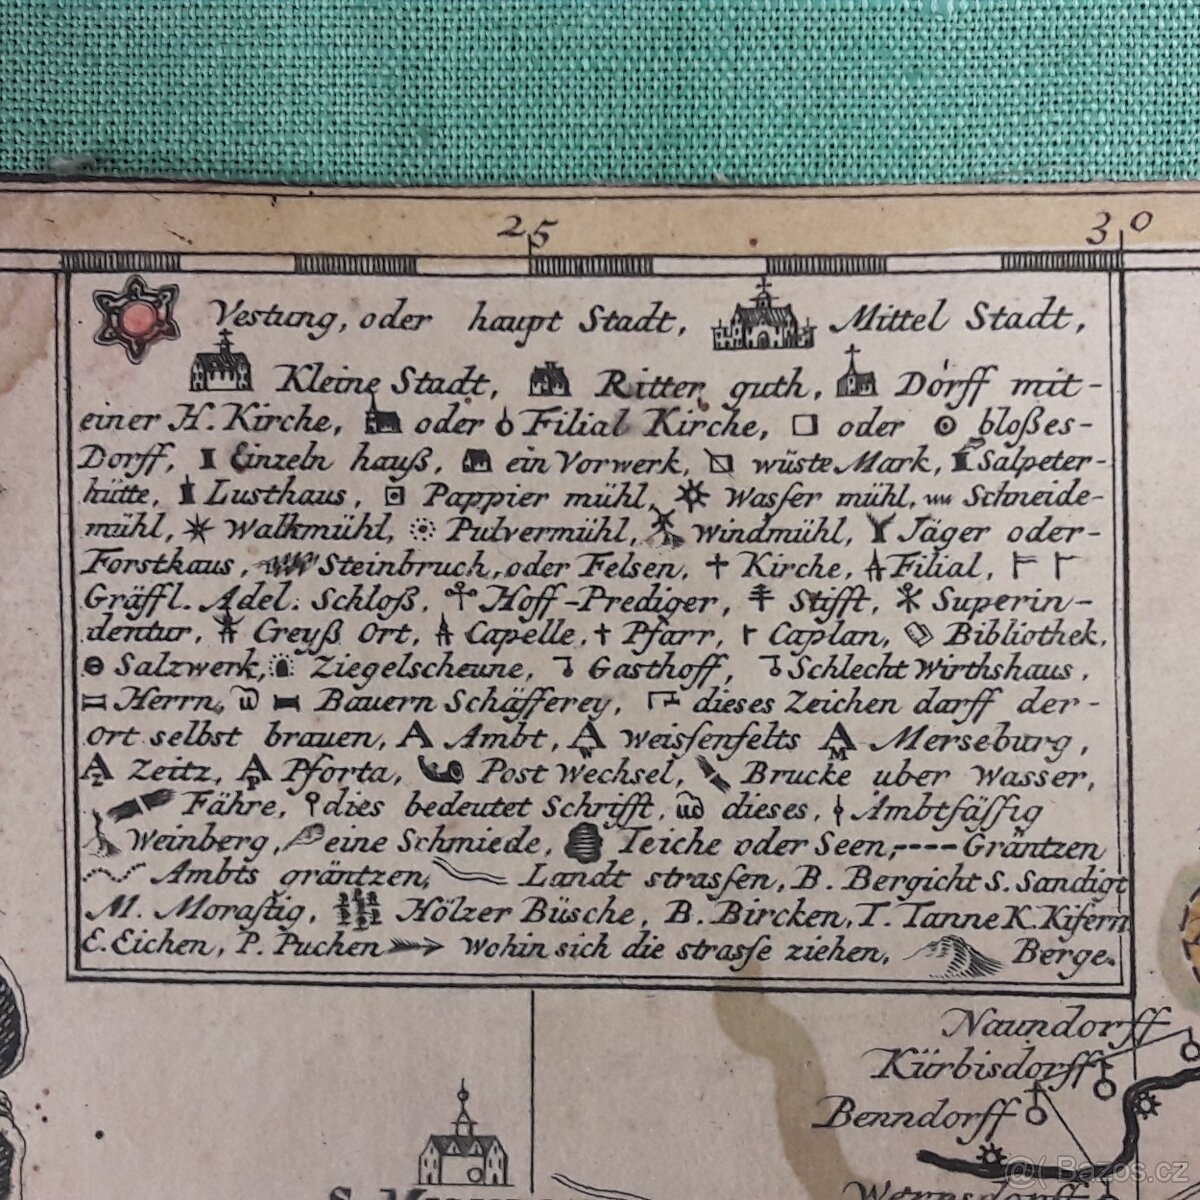 25 30
Vestung, oder haupt Stadt, Mittel Stadt,
Kleine Stadt, Ritter guth, Dorff mit-
einer H. Kirche, oder Filial Kirche, oder bloßes-
Dorff, Einzeln hauß, ein Vorwerk, wüste Mark, Salpeter-
hütte, Lusthaus, Pappier mühl, Wasser mühl, Schneide-
mühl, Walkmühl, Pulvermühl, Windmühl, Jäger oder-
Forsthaus, Steinbruch, oder Felsen, Kirche, Filial,
Gräffl. Adel. Schloß, Hoff-Prediger, Stifft, Superin-
dentur, Creyß Ort, Capelle, Pfarr, Caplan, Bibliothek,
Salzwerk, Ziegelscheune, Gasthoff, Schlecht Wirthshaus,
Herrn, Bauern Schäfferey, dieses Zeichen darff der-
Ort selbst brauen, A Ambt, A Weissenfelts A M Merseburg,
A Z Zeitz, A P Pforta, Post Wechsel, Brucke uber Wasser,
Fähre, dies bedeutet Schrifft, dieses, Ambtsässig
Weinberg, eine Schmiede, Teiche oder Seen, ---- Gräntzen
Ambts gräntzen, Landt strassen, B. Bergicht S. Sandigt
M. Morastig, Hölzer Büsche, B. Bircken, T. Tanne K. Kifern
E. Eichen, P. Puchen Wohin sich die strasse ziehen, Berge.
Naundorff
Kürbisdorff
Benndorff
@( Bazos.cz